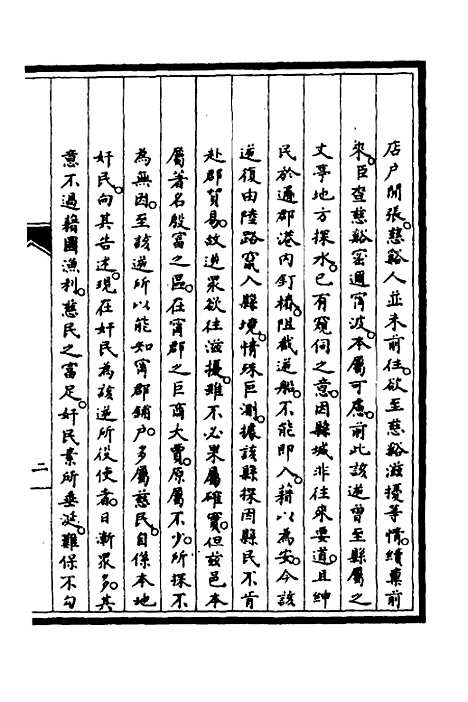 店户閉張。慈谿人並未前往。欲至慈谿滋擾等情。續稟前
來。臣查慈谿密邇甯波。本屬可慮。前此該逆曾至縣屬之
丈亭地方探水。已有窺伺之意。因縣城非往來要道。且紳
民於通郡港內釘樁。阻截逆船。不能卽入。藉以為安。今該
逆復由陸路竄入縣境。情殊叵測。據該縣探因縣民不肯
赴郡貿易。故逆眾欲往滋擾。雖不必果屬確實。但茲邑本
屬著名殷富之區。在甯郡之巨商大賈。原屬不少。所探不
為無因。至該逆所以能知甯郡鋪户。多屬慈民。自係本地
奸民。向其告述。現在奸民為該逆所役使者。日漸眾多。其
意不過藉圖漁利。慈民之富足。奸民素所垂涎。難保不勾
二